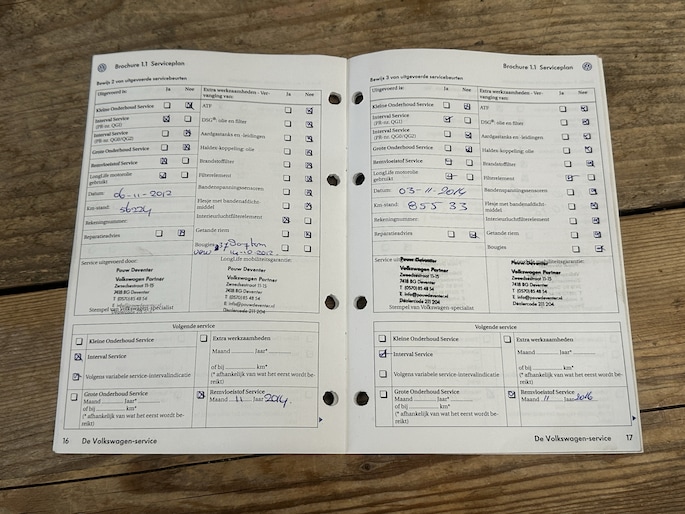 Brochure 1.1 Serviceplan
Bewijs 2 van uitgevoerde servicebeurten
Uitgevoerd is: Ja Nee
Kleine Onderhoud Service
Interval Service
(PR-nr. QG1)
Interval Service
(PR-nr. QG0/QG2)
Grote Onderhoud Service
Remvloeistof Service
LongLife motorolie
gebruikt
Datum: 06-11-2012
Km-stand: 56224
Rekeningnummer:
Reparatieadvies
Extra werkzaamheden - Ver-
vanging van: Ja Nee
ATF
DSG®: olie en filter
Aardgastanks en -leidingen
Haldex-koppeling: olie
Brandstoffilter
Filterelement
Bandenspanningssensoren
Flesje met bandenafdicht-
middel
Interieurluchtfilterelement
Getande riem
Bougies
Service uitgevoerd door:
LongLife Mobiliteitsgarantie:
Pouw Deventer
Volkswagen Partner
Zweedsestraat 11-15
7418 BG Deventer
T (0570) 85 48 54
Stempel van Volkswagen-specialist
Pouw Deventer
Volkswagen Partner
Zweedsestraat 11-15
7418 BG Deventer
T (0570) 85 48 54
Dealercode 211 204
Volgende service
Kleine Onderhoud Service
Interval Service
Volgens variabele service-intervalindicatie
Extra werkzaamheden
Maand Jaar*
of bij km*
(* afhankelijk van wat het eerst wordt be-
reikt)
Grote Onderhoud Service
Maand Jaar*
of bij km*
(* afhankelijk van wat het eerst wordt be-
reikt)
Remvloeistof Service
Maand 11 Jaar 2014
16 De Volkswagen-service
Brochure 1.1 Serviceplan
Bewijs 3 van uitgevoerde servicebeurten
Uitgevoerd is: Ja Nee
Kleine Onderhoud Service
Interval Service
(PR-nr. QG1)
Interval Service
(PR-nr. QG0/QG2)
Grote Onderhoud Service
Remvloeistof Service
LongLife motorolie
gebruikt
Datum: 03-11-2014
Km-stand: 85533
Rekeningnummer:
Reparatieadvies
Extra werkzaamheden - Ver-
vanging van: Ja Nee
ATF
DSG®: olie en filter
Aardgastanks en -leidingen
Haldex-koppeling: olie
Brandstoffilter
Filterelement
Bandenspanningssensoren
Flesje met bandenafdicht-
middel
Interieurluchtfilterelement
Getande riem
Bougies
Pouw Deventer
Volkswagen Partner
Zweedsestraat 11-15
7418 BG Deventer
T (0570) 85 48 54
E info@pouwdeventer.nl
Dealercode 211 204
Stempel van Volkswagen-specialist
Pouw Deventer
Volkswagen Partner
Zweedsestraat 11-15
7418 BG Deventer
T (0570) 85 48 54
E info@pouwdeventer.nl
Dealercode 211 204
Volgende service
Kleine Onderhoud Service
Interval Service
Volgens variabele service-intervalindicatie
Extra werkzaamheden
Maand Jaar*
of bij km*
(* afhankelijk van wat het eerst wordt be-
reikt)
Grote Onderhoud Service
Maand Jaar*
of bij km*
(* afhankelijk van wat het eerst wordt be-
reikt)
Remvloeistof Service
Maand 11 Jaar 2016
De Volkswagen-service 17